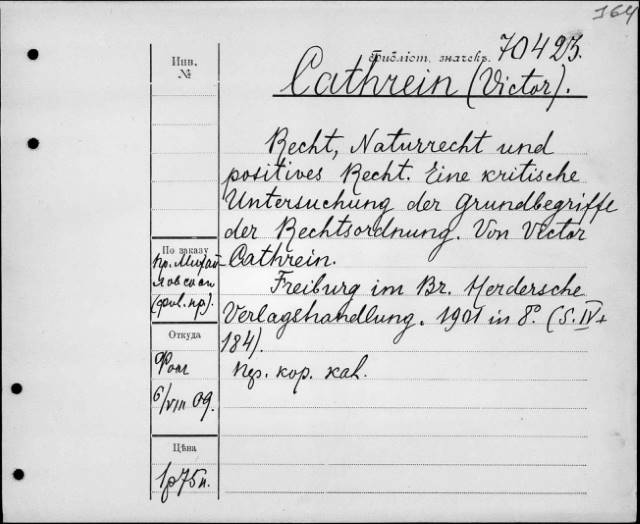 164
Инв.
№
Библіот. значекъ. 70423.
Cathrein (Victor).
Recht, Naturrecht und
positives Recht. Eine kritische
Untersuchung der Grundbegriffe
der Rechtsordnung. Von Victor
Cathrein.
Freiburg im Br. Herdersche
Verlagshandlung. 1901 in 8°. (S. IV+
184).
кор. кан.
По заказу
пр. Михай-
ловскаго
(фил. пр.).
Откуда
Фок
6/VIII 09.
Цѣна
1р75к.